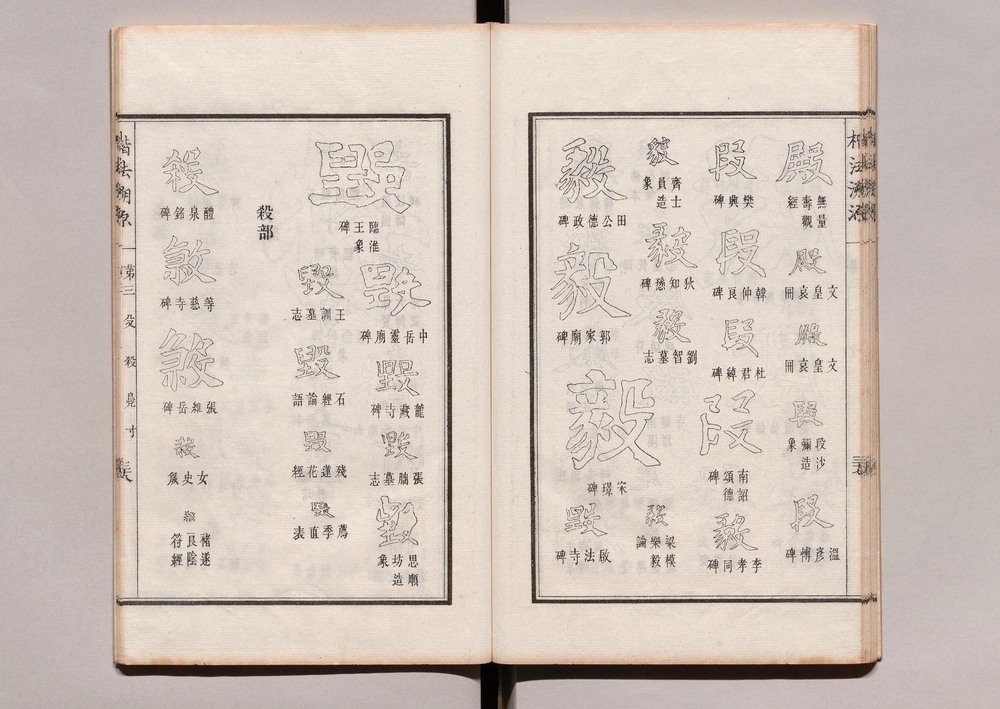 殿
無量壽觀經
殿
文皇哀冊
殿
文皇哀冊
段
段沙彌造象
段
溫彥博碑
段
樊興碑
段
韓仲良碑
段
杜君綽碑
段
南詔德頌碑
毅
李孝同碑
毅
齊士員造象
毅
狄知愻碑
毅
劉智墓志
毅
梁模樂毅論
毅
田公德政碑
毅
郭家廟碑
毅
宋璟碑
毀
啟法寺碑
毀
臨淮王象碑
毀
中岳靈廟碑
毀
龍藏寺碑
毀
張朏墓志
毀
思順坊造象
毀
王訓墓志
毀
石經論語
毀
殘蓮花經
毀
薦季直表
殺部
殺
醴泉銘碑
殺
等慈寺碑
殺
張維岳碑
殺
女史箴
殺
褚遂良陰符經
楷法溯源
弟三 殳 殺 寸